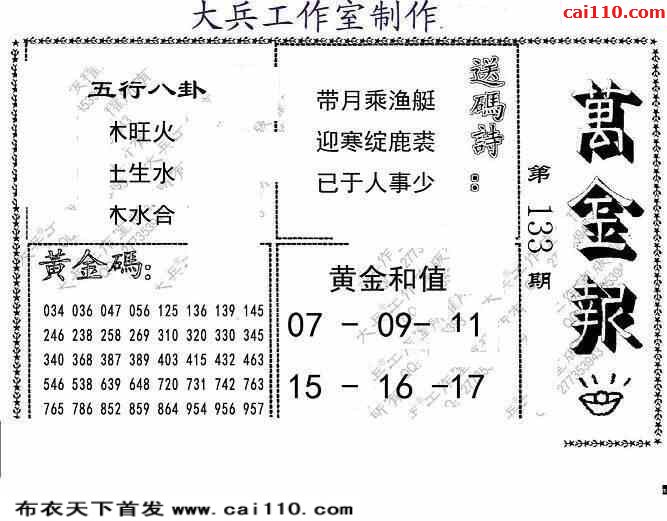 大兵工作室制作.
cai110.com
五行八卦
木旺火
土生水
木水合
送碼詩:
带月乘渔艇
迎寒绽鹿裘
已于人事少
萬金報
第133期
黃金碼:
034 036 047 056 125 136 139 145
246 238 258 269 310 320 330 345
340 368 387 389 403 415 432 463
546 538 639 648 720 731 742 763
765 786 852 859 864 954 956 957
黄金和值
07 - 09- 11
15 - 16 -17
布衣天下首发 www.cai110.com